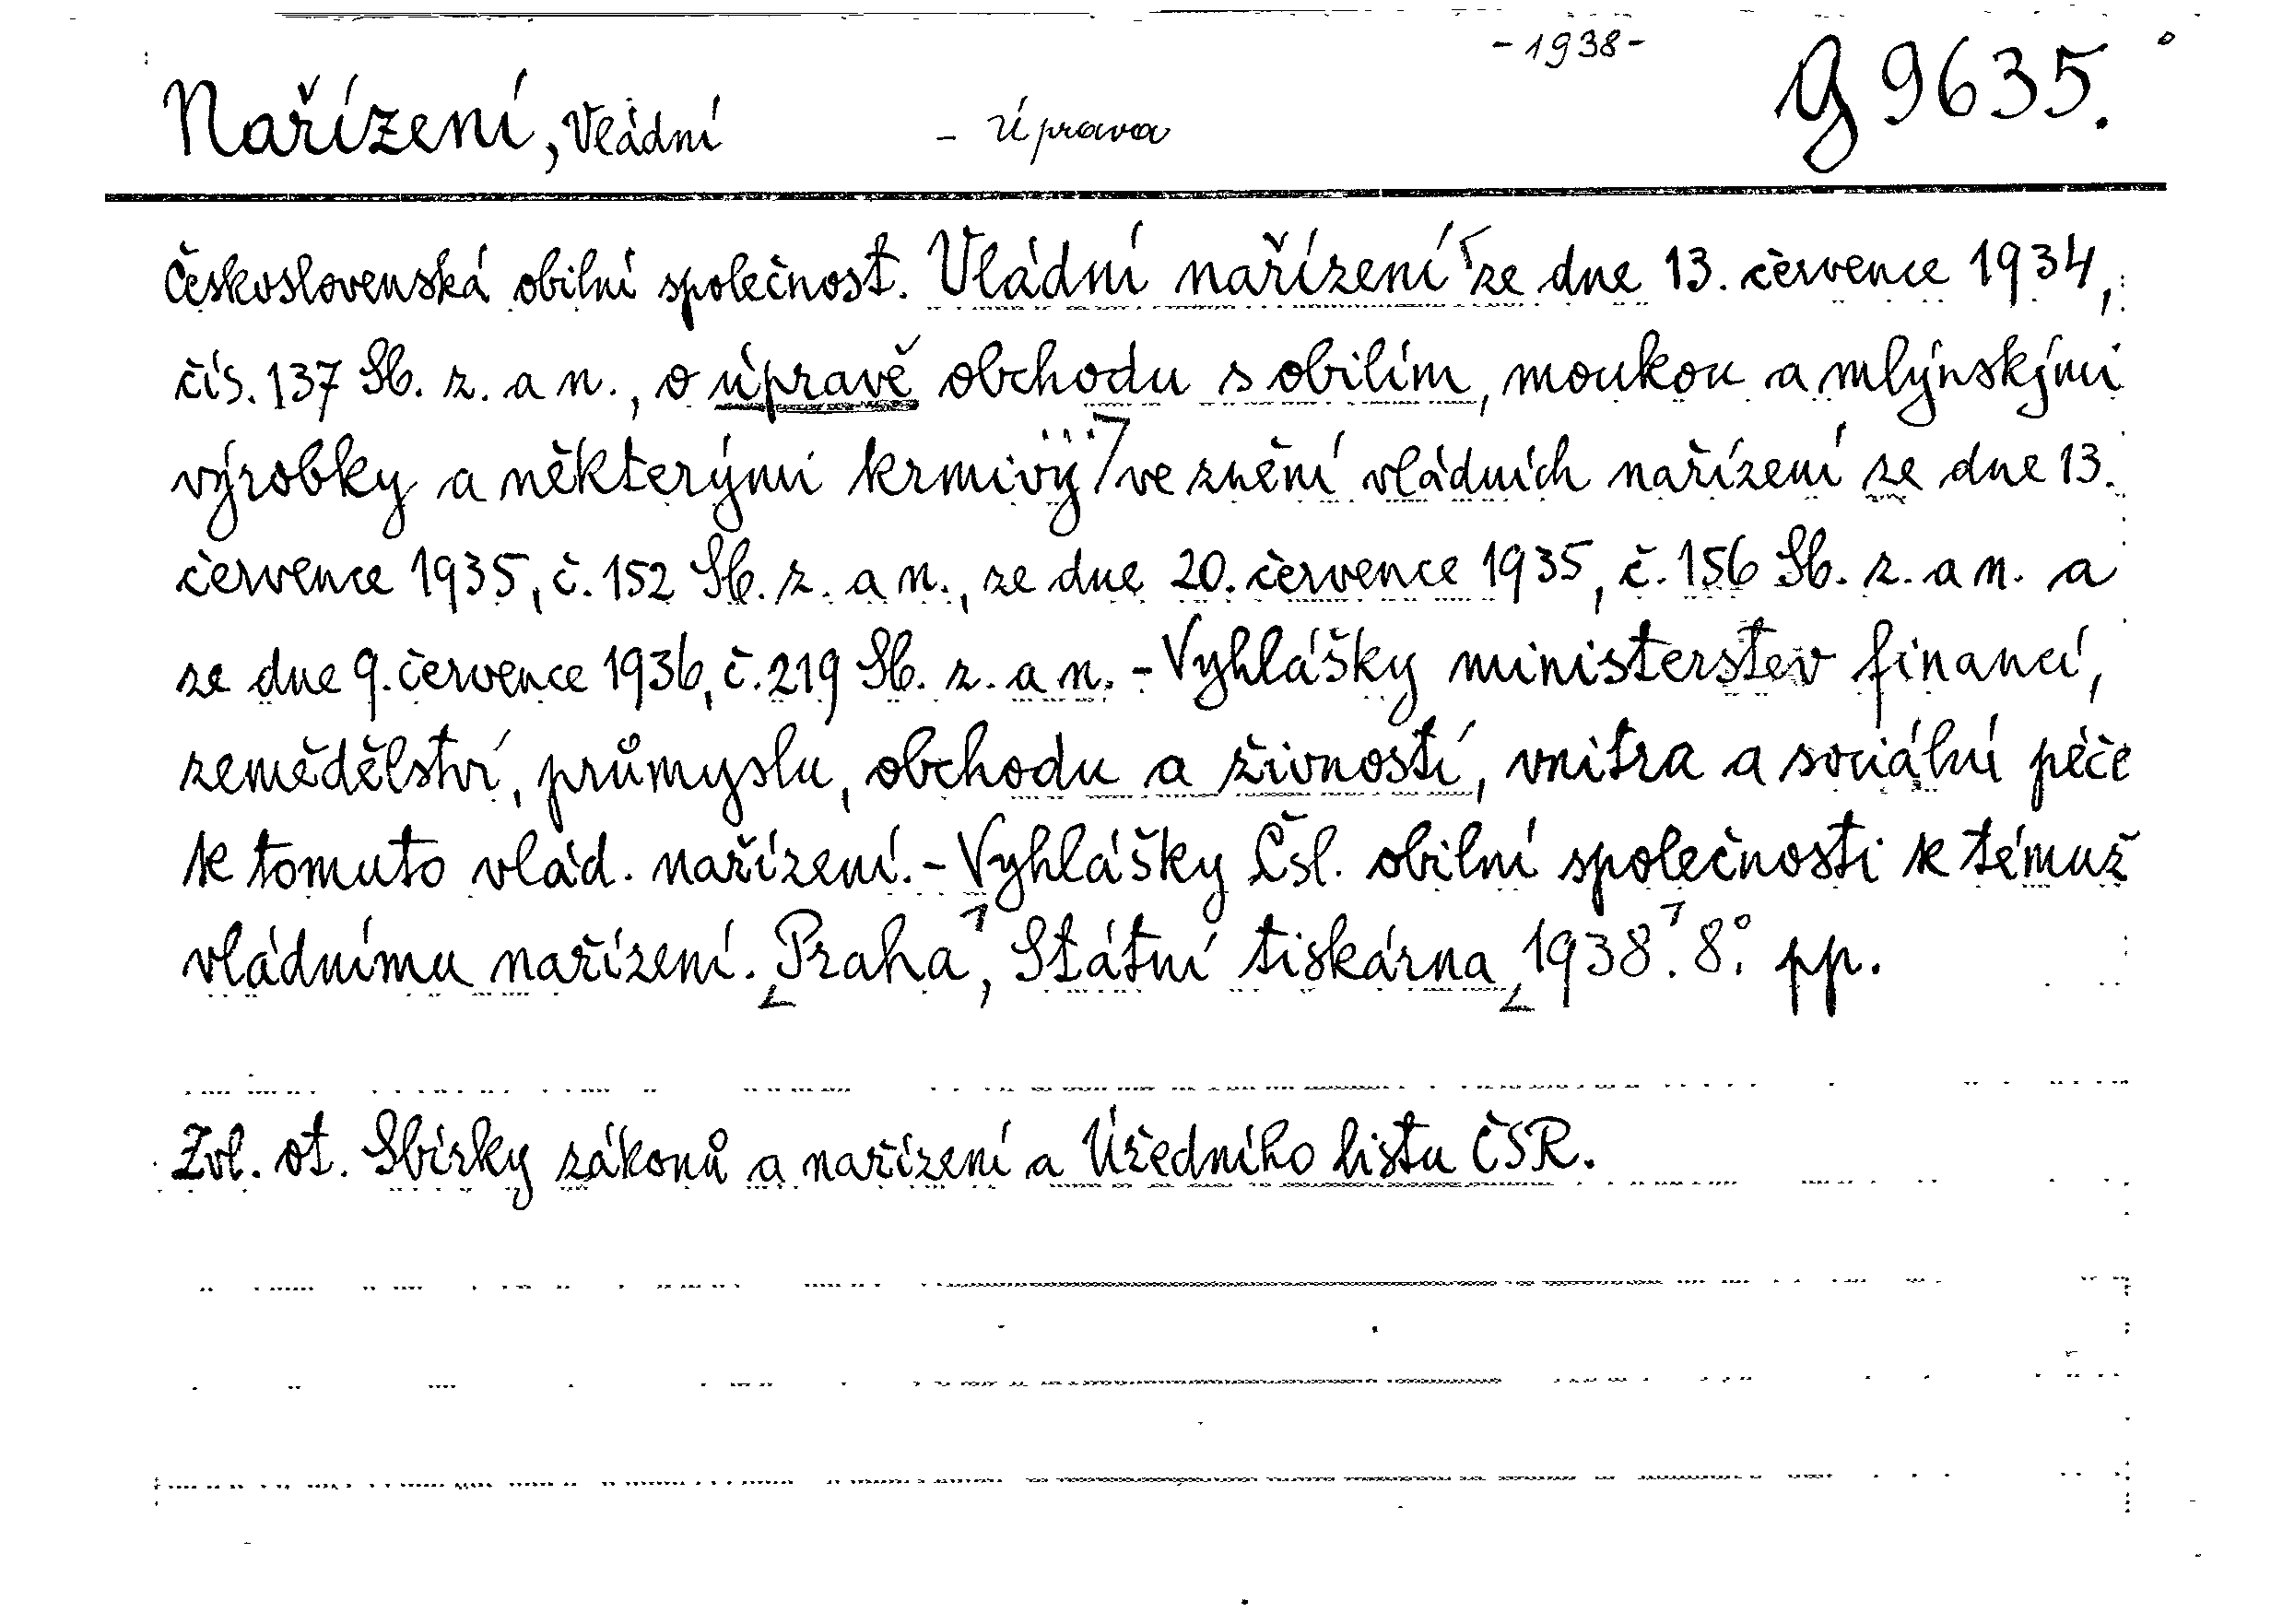 -1938-
Nařízení, Vládní - Úprava g 9635.
Československá obilní společnost. Vládní nařízení ze dne 13. července 1934,
čís. 137 Sb. z. a n., o úpravě obchodu s obilím, moukou a mlýnskými
výrobky a některými krmivy ve znění vládních nařízení ze dne 13.
července 1935, č. 152 Sb. z. a n., ze dne 20. července 1935, č. 156 Sb. z. a n. a
ze dne 9. července 1936, č. 219 Sb. z. a n. - Vyhlášky ministerstev financí,
zemědělství, průmyslu, obchodu a živností, vnitra a sociální péče
k tomuto vlád. nařízení. - Vyhlášky Čsl. obilní společnosti k témuž
vládnímu nařízení. Praha, Státní tiskárna 1938. 8°. pp.
Zvl. ot. Sbírky zákonů a nařízení a Úředního listu ČSR.